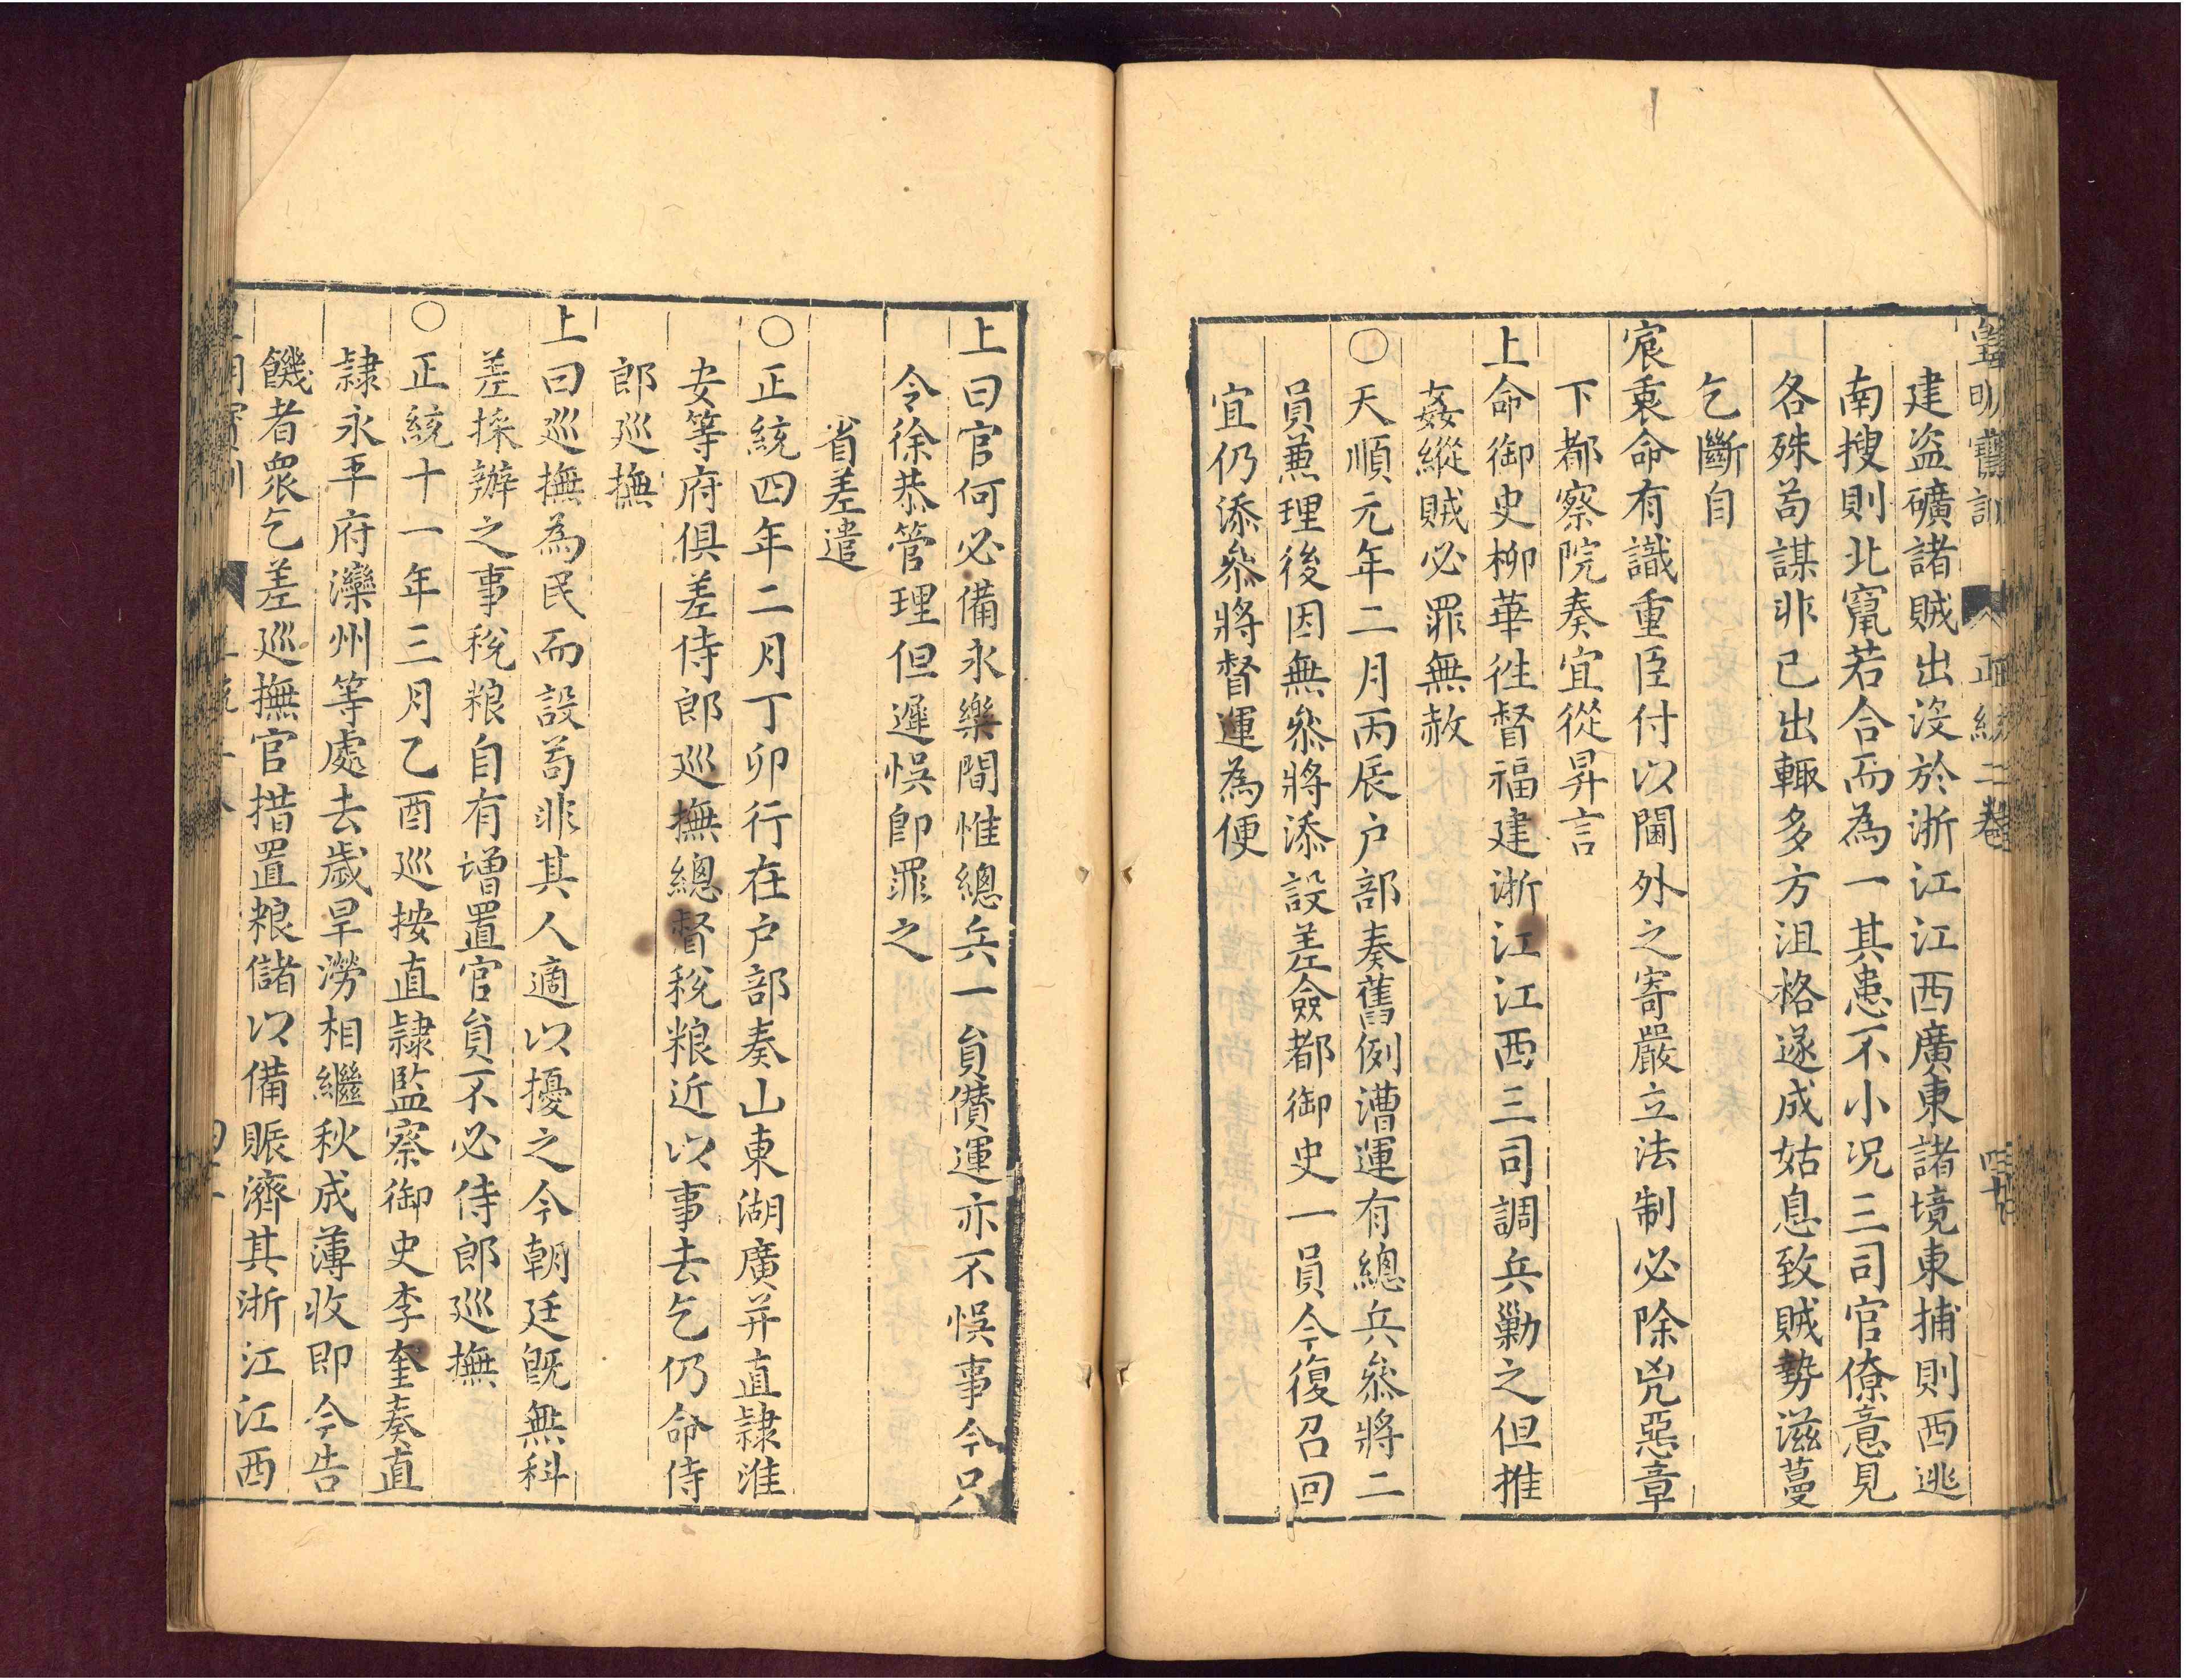 皇明寶訓 正統二卷
建盜礦諸賊出沒於浙江江西廣東諸境東捕則西逃
南搜則北竄若合而為一其患不小况三司官僚意見
各殊苟謀非已出輙多方沮格遂成姑息致賊勢滋蔓
乞斷自
宸衷命有識重臣付以閫外之寄嚴立法制必除兇惡章
下都察院奏宜從昇言
上命御史柳華徃督福建浙江江西三司調兵勦之但推
姦縱賊必罪無赦
○天順元年二月丙辰户部奏舊例漕運有總兵叅將二
員兼理後因無叅將添設差僉都御史一員今復召回
宜仍添叅將督運為便
上曰官何必備永樂間惟總兵一員儹運亦不悞事今只
令徐恭管理但遲悞即罪之
省差遣
○正統四年二月丁卯行在户部奏山東湖廣并直隷淮
安等府俱差侍郎巡撫總督稅粮近以事去乞仍命侍
郎巡撫
上曰巡撫為民而設苟非其人適以擾之今朝廷既無科
差採辦之事稅粮自有增置官員不必侍郎巡撫
○正統十一年三月乙酉巡按直隷監察御史李奎奏直
隷永平府灤州等處去歲旱澇相繼秋成薄收即今告
饑者衆乞差巡撫官措置粮儲以備賑濟其浙江江西